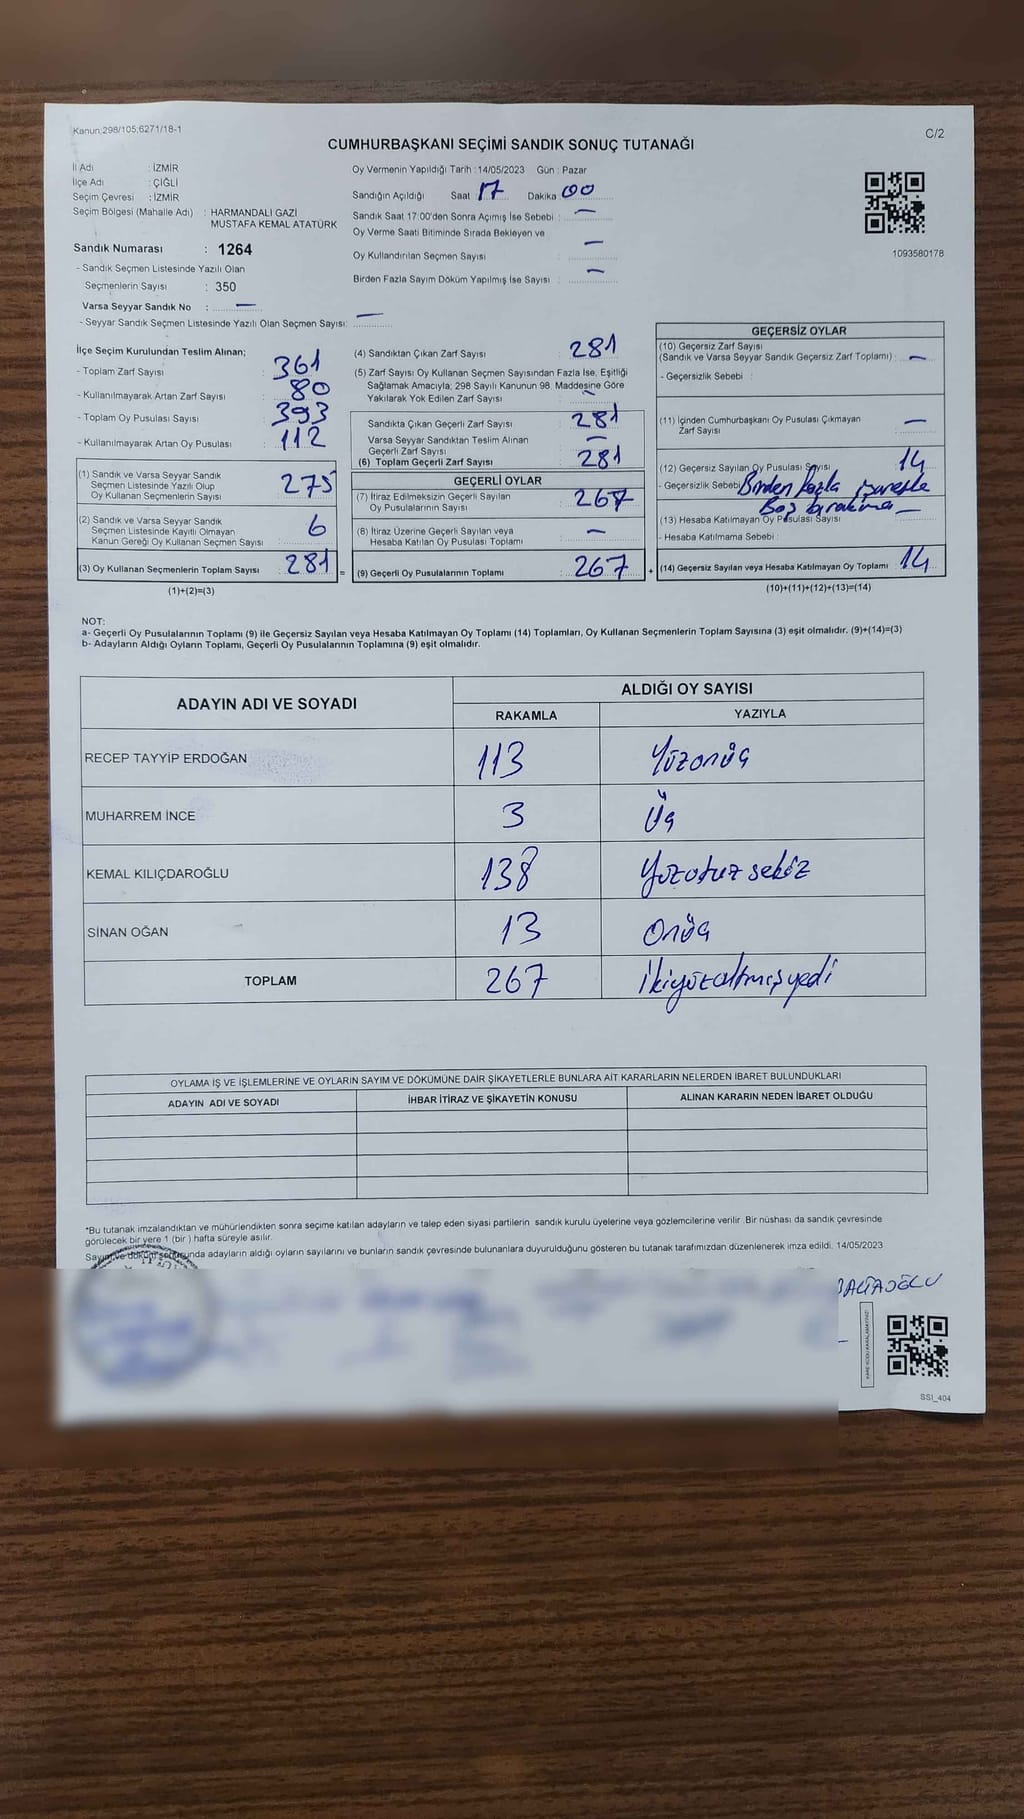 Kanun;298/105;6271/18-1
C/2
CUMHURBAŞKANI SEÇİMİ SANDIK SONUÇ TUTANAĞI
İl Adı : İZMİR
İlçe Adı : ÇİĞLİ
Seçim Çevresi : İZMİR
Seçim Bölgesi (Mahalle Adı) : HARMANDALI GAZİ
MUSTAFA KEMAL ATATÜRK
Sandık Numarası : 1264
- Sandık Seçmen Listesinde Yazılı Olan
Seçmenlerin Sayısı : 350
Varsa Seyyar Sandık No : —
- Seyyar Sandık Seçmen Listesinde Yazılı Olan Seçmen Sayısı: —
Oy Vermenin Yapıldığı Tarih : 14/05/2023 Gün : Pazar
Sandığın Açıldığı Saat 17 Dakika 00
Sandık Saat 17:00'den Sonra Açımış İse Sebebi : —
Oy Verme Saati Bitiminde Sırada Bekleyen ve
Oy Kullandırılan Seçmen Sayısı : —
Birden Fazla Sayım Döküm Yapılmış İse Sayısı : —
1093580178
İlçe Seçim Kurulundan Teslim Alınan;
- Toplam Zarf Sayısı : 361
- Kullanılmayarak Artan Zarf Sayısı : 80
- Toplam Oy Pusulası Sayısı : 393
- Kullanılmayarak Artan Oy Pusulası : 112
(1) Sandık ve Varsa Seyyar Sandık
Seçmen Listesinde Yazılı Olup
Oy Kullanan Seçmenlerin Sayısı : 275
(2) Sandık ve Varsa Seyyar Sandık
Seçmen Listesinde Kayıtlı Olmayan
Kanun Gereği Oy Kullanan Seçmen Sayısı : 6
(3) Oy Kullanan Seçmenlerin Toplam Sayısı : 281
(1)+(2)=(3)
(4) Sandıktan Çıkan Zarf Sayısı : 281
(5) Zarf Sayısı Oy Kullanan Seçmen Sayısından Fazla İse, Eşitliği
Sağlamak Amacıyla; 298 Sayılı Kanunun 98. Maddesine Göre
Yakılarak Yok Edilen Zarf Sayısı : —
Sandıkta Çıkan Geçerli Zarf Sayısı : 281
Varsa Seyyar Sandıktan Teslim Alınan
Geçerli Zarf Sayısı : —
(6) Toplam Geçerli Zarf Sayısı : 281
GEÇERLİ OYLAR
(7) İtiraz Edilmeksizin Geçerli Sayılan
Oy Pusulalarının Sayısı : 267
(8) İtiraz Üzerine Geçerli Sayılan veya
Hesaba Katılan Oy Pusulası Toplamı : —
= (9) Geçerli Oy Pusulalarının Toplamı : 267
GEÇERSİZ OYLAR
(10) Geçersiz Zarf Sayısı
(Sandık ve Varsa Seyyar Sandık Geçersiz Zarf Toplamı) : —
- Geçersizlik Sebebi :
(11) İçinden Cumhurbaşkanı Oy Pusulası Çıkmayan
Zarf Sayısı : —
(12) Geçersiz Sayılan Oy Pusulası Sayısı : 14
- Geçersizlik Sebebi Birden fazla işaretle
Boş bırakma
(13) Hesaba Katılmayan Oy Pusulası Sayısı : —
- Hesaba Katılmama Sebebi :
+ (14) Geçersiz Sayılan veya Hesaba Katılmayan Oy Toplamı : 14
(10)+(11)+(12)+(13)=(14)
NOT:
a- Geçerli Oy Pusulalarının Toplamı (9) ile Geçersiz Sayılan veya Hesaba Katılmayan Oy Toplamı (14) Toplamları, Oy Kullanan Seçmenlerin Toplam Sayısına (3) eşit olmalıdır. (9)+(14)=(3)
b- Adayların Aldığı Oyların Toplamı, Geçerli Oy Pusulalarının Toplamına (9) eşit olmalıdır.
ADAYIN ADI VE SOYADI ALDIĞI OY SAYISI
RAKAMLA YAZIYLA
RECEP TAYYİP ERDOĞAN 113 Yüzonüç
MUHARREM İNCE 3 Üç
KEMAL KILIÇDAROĞLU 138 Yüzotuz sekiz
SİNAN OĞAN 13 Onüç
TOPLAM 267 İkiyüzaltmışyedi
OYLAMA İŞ VE İŞLEMLERİNE VE OYLARIN SAYIM VE DÖKÜMÜNE DAİR ŞİKAYETLERLE BUNLARA AİT KARARLARIN NELERDEN İBARET BULUNDUKLARI
ADAYIN ADI VE SOYADI İHBAR İTİRAZ VE ŞİKAYETİN KONUSU ALINAN KARARIN NEDEN İBARET OLDUĞU
*Bu tutanak imzalandıktan ve mühürlendikten sonra seçime katılan adayların ve talep eden siyasi partilerin sandık kurulu üyelerine veya gözlemcilerine verilir .Bir nüshası da sandık çevresinde
görülecek bir yere 1 (bir ) hafta süreyle asılır.
Sayım ve döküm sonucunda adayların aldığı oyların sayılarını ve bunların sandık çevresinde bulunanlara duyurulduğunu gösteren bu tutanak tarafımızdan düzenlenerek imza edildi. 14/05/2023
SSI_404